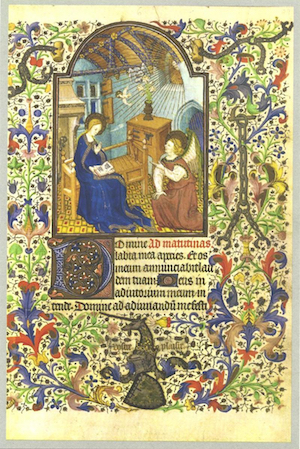 Domine Ad matutinas
labia mea apries. Et os
meum annunciabit lau
dem tuam Deus in
adiutorium meum in
tende. Domine ad adiuuandum me festi